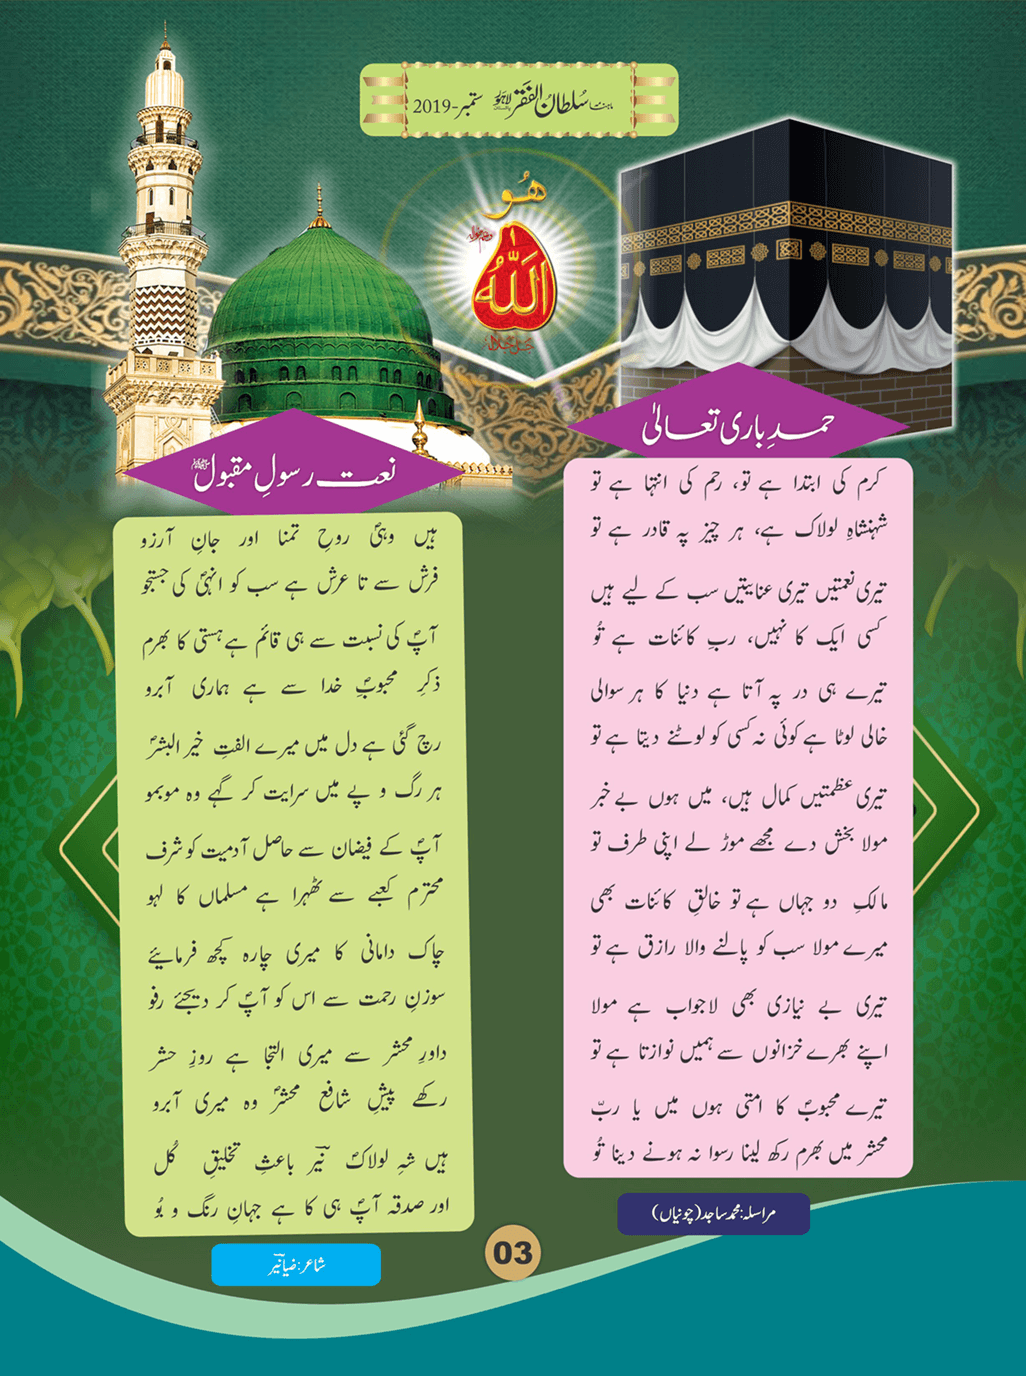 ماہنامہ سلطان الفقر لاہور ستمبر-2019
ھُو
اللہ
حمدِ باری تعالیٰ
کرم کی ابتدا ہے تو، رحم کی انتہا ہے تو
شہنشاہِ لولاک ہے، ہر چیز پہ قادر ہے تو
تیری نعمتیں تیری عنایتیں سب کے لیے ہیں
کسی ایک کا نہیں، ربِ کائنات ہے تُو
تیرے ہی در پہ آتا ہے دنیا کا ہر سوالی
خالی لوٹا ہے کوئی نہ کسی کو لوٹنے دیتا ہے تو
تیری عظمتیں کمال ہیں، میں ہوں بے خبر
مولا بخش دے مجھے موڑ لے اپنی طرف تو
مالکِ دو جہاں ہے تو خالقِ کائنات بھی
میرے مولا سب کو پالنے والا رازق ہے تو
تیری بے نیازی بھی لاجواب ہے مولا
اپنے بھرے خزانوں سے ہمیں نوازتا ہے تو
تیرے محبوبؐ کا امتی ہوں میں یا ربّ
محشر میں بھرم رکھ لینا رسوا نہ ہونے دینا تُو
مراسلہ: محمد ساجد (چونیاں)
نعت رسولِ مقبول ﷺ
ہیں وہیؐ روحِ تمنا اور جانِ آرزو
فرش سے تا عرش ہے سب کو انہیؐ کی جستجو
آپؐ کی نسبت سے ہی قائم ہے ہستی کا بھرم
ذکرِ محبوبِؐ خدا سے ہے ہماری آبرو
رچ گئی ہے دل میں میرے الفتِ خیر البشرؐ
ہر رگ و پے میں سرایت کر گہے وہ موبمو
آپؐ کے فیضان سے حاصل آدمیت کو شرف
محترم کعبے سے ٹھہرا ہے مسلماں کا لہو
چاک دامانی کا میری چارہ کچھ فرمائیے
سوزنِ رحمت سے اس کو آپؐ کر دیجئے رفو
داورِ محشر سے میری التجا ہے روزِ حشر
رکھے پیشِ شافعِ محشرؐ وہ میری آبرو
ہیں شہِ لولاکؐ نیرؔ باعثِ تخلیقِ کُل
اور صدقہ آپؐ ہی کا ہے جہانِ رنگ و بُو
شاعر: ضیا نیرؔ
03